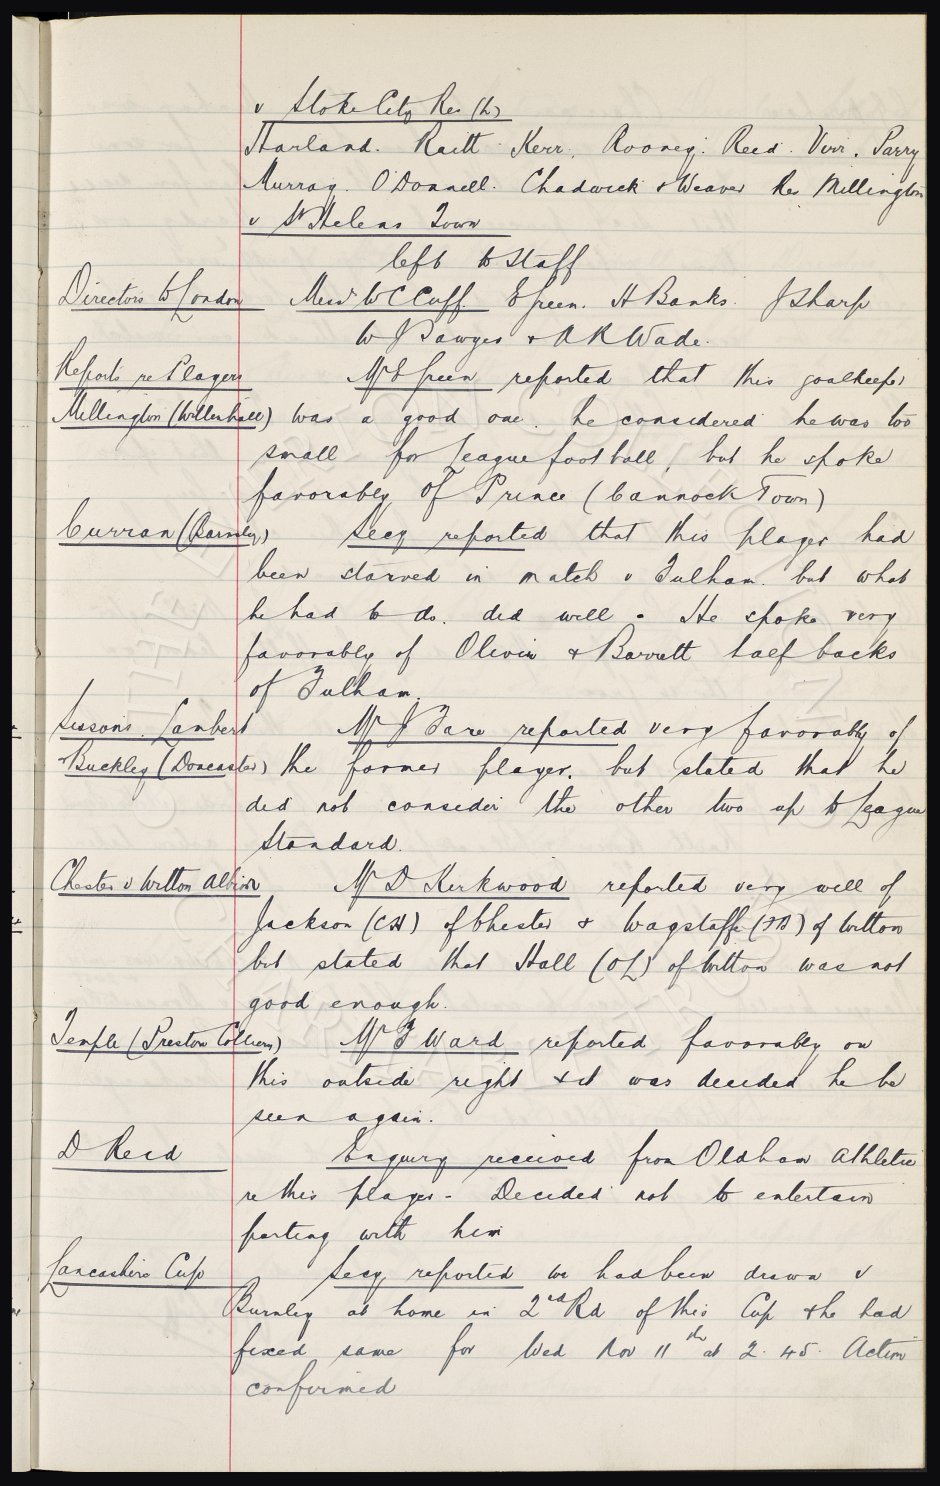 v Stoke City Res (h)
Harland. Raitt Kerr, Rooney. Reed. Virr. Parry
Murray. O'Donnell. Chadwick & Weaver Res Millington
v St Helens Town
left to Staff
Directors to London Messrs W C Cuff. E Green. H Banks. J Sharp
W J Sawyer & A R Wade.
Reports re Players Mr E Green reported that this goalkeeper
Millington (Willenhall) was a good one. he considered he was too
small for League football, but he spoke
favorably of Prince (Cannock Town)
Curran (Barnsley) Secy reported that this player had
been starved in match v Fulham. but what
he had to do. did well. He spoke very
favorably of Oliver & Barrett half backs
of Fulham.
Sissons. Lambert Mr J Fare reported very favorably of
& Buckley (Doncaster) the former player. but stated that he
did not consider the other two up to League
Standard.
Chester v Witton Albion Mr D Kirkwood reported very well of
Jackson (CH) of Chester & Wagstaffe (FB) of Witton
but stated that Hall (OL) of Witton was not
good enough.
Temple (Preston Colliery) Mr F Ward reported favorably on
this outside right & it was decided he be
seen again.
D Reed Enquiry received from Oldham Athletic
re this player - Decided not to entertain
parting with him
Lancashire Cup Secy reported we had been drawn v
Burnley at home in 2nd Rd of this Cup & he had
fixed same for Wed Nov 11th at 2.45. Action
confirmed